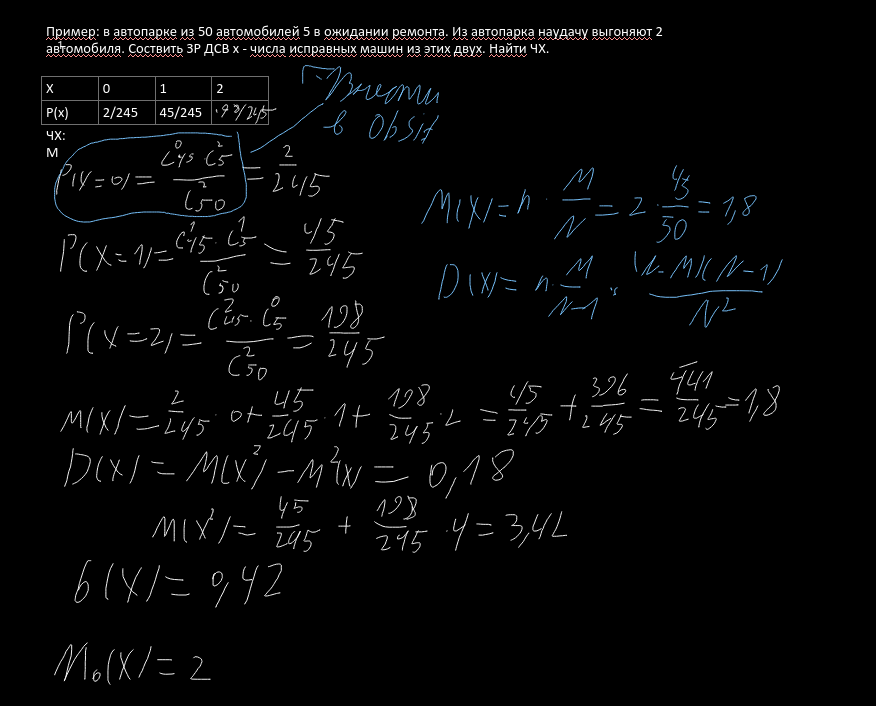 Пример: в автопарке из 50 автомобилей 5 в ожидании ремонта. Из автопарка наудачу выгоняют 2
автомобиля. Соствить ЗР ДСВ х - числа исправных машин из этих двух. Найти ЧХ.
X 0 1 2
P(x) 2/245 45/245 198/245
Внести
в Obsid
ЧХ:
М
P(X=0) = C⁰₄₅·C²₅ / C²₅₀ = 2/245
M(X) = n · M/N = 2 · 45/50 = 1,8
P(X=1) = C¹₄₅·C¹₅ / C²₅₀ = 45/245
D(X) = n · M/N-1 · (N-M)(N-1)/N²
P(X=2) = C²₄₅·C⁰₅ / C²₅₀ = 198/245
M(X) = 2/245 · 0 + 45/245 · 1 + 198/245 · 2 = 45/245 + 396/245 = 441/245 = 1,8
D(X) = M(X²) - M²(X) = 0,18
M(X²) = 45/245 + 198/245 · 4 = 3,42
б(X) = 0,42
M₀(X) = 2